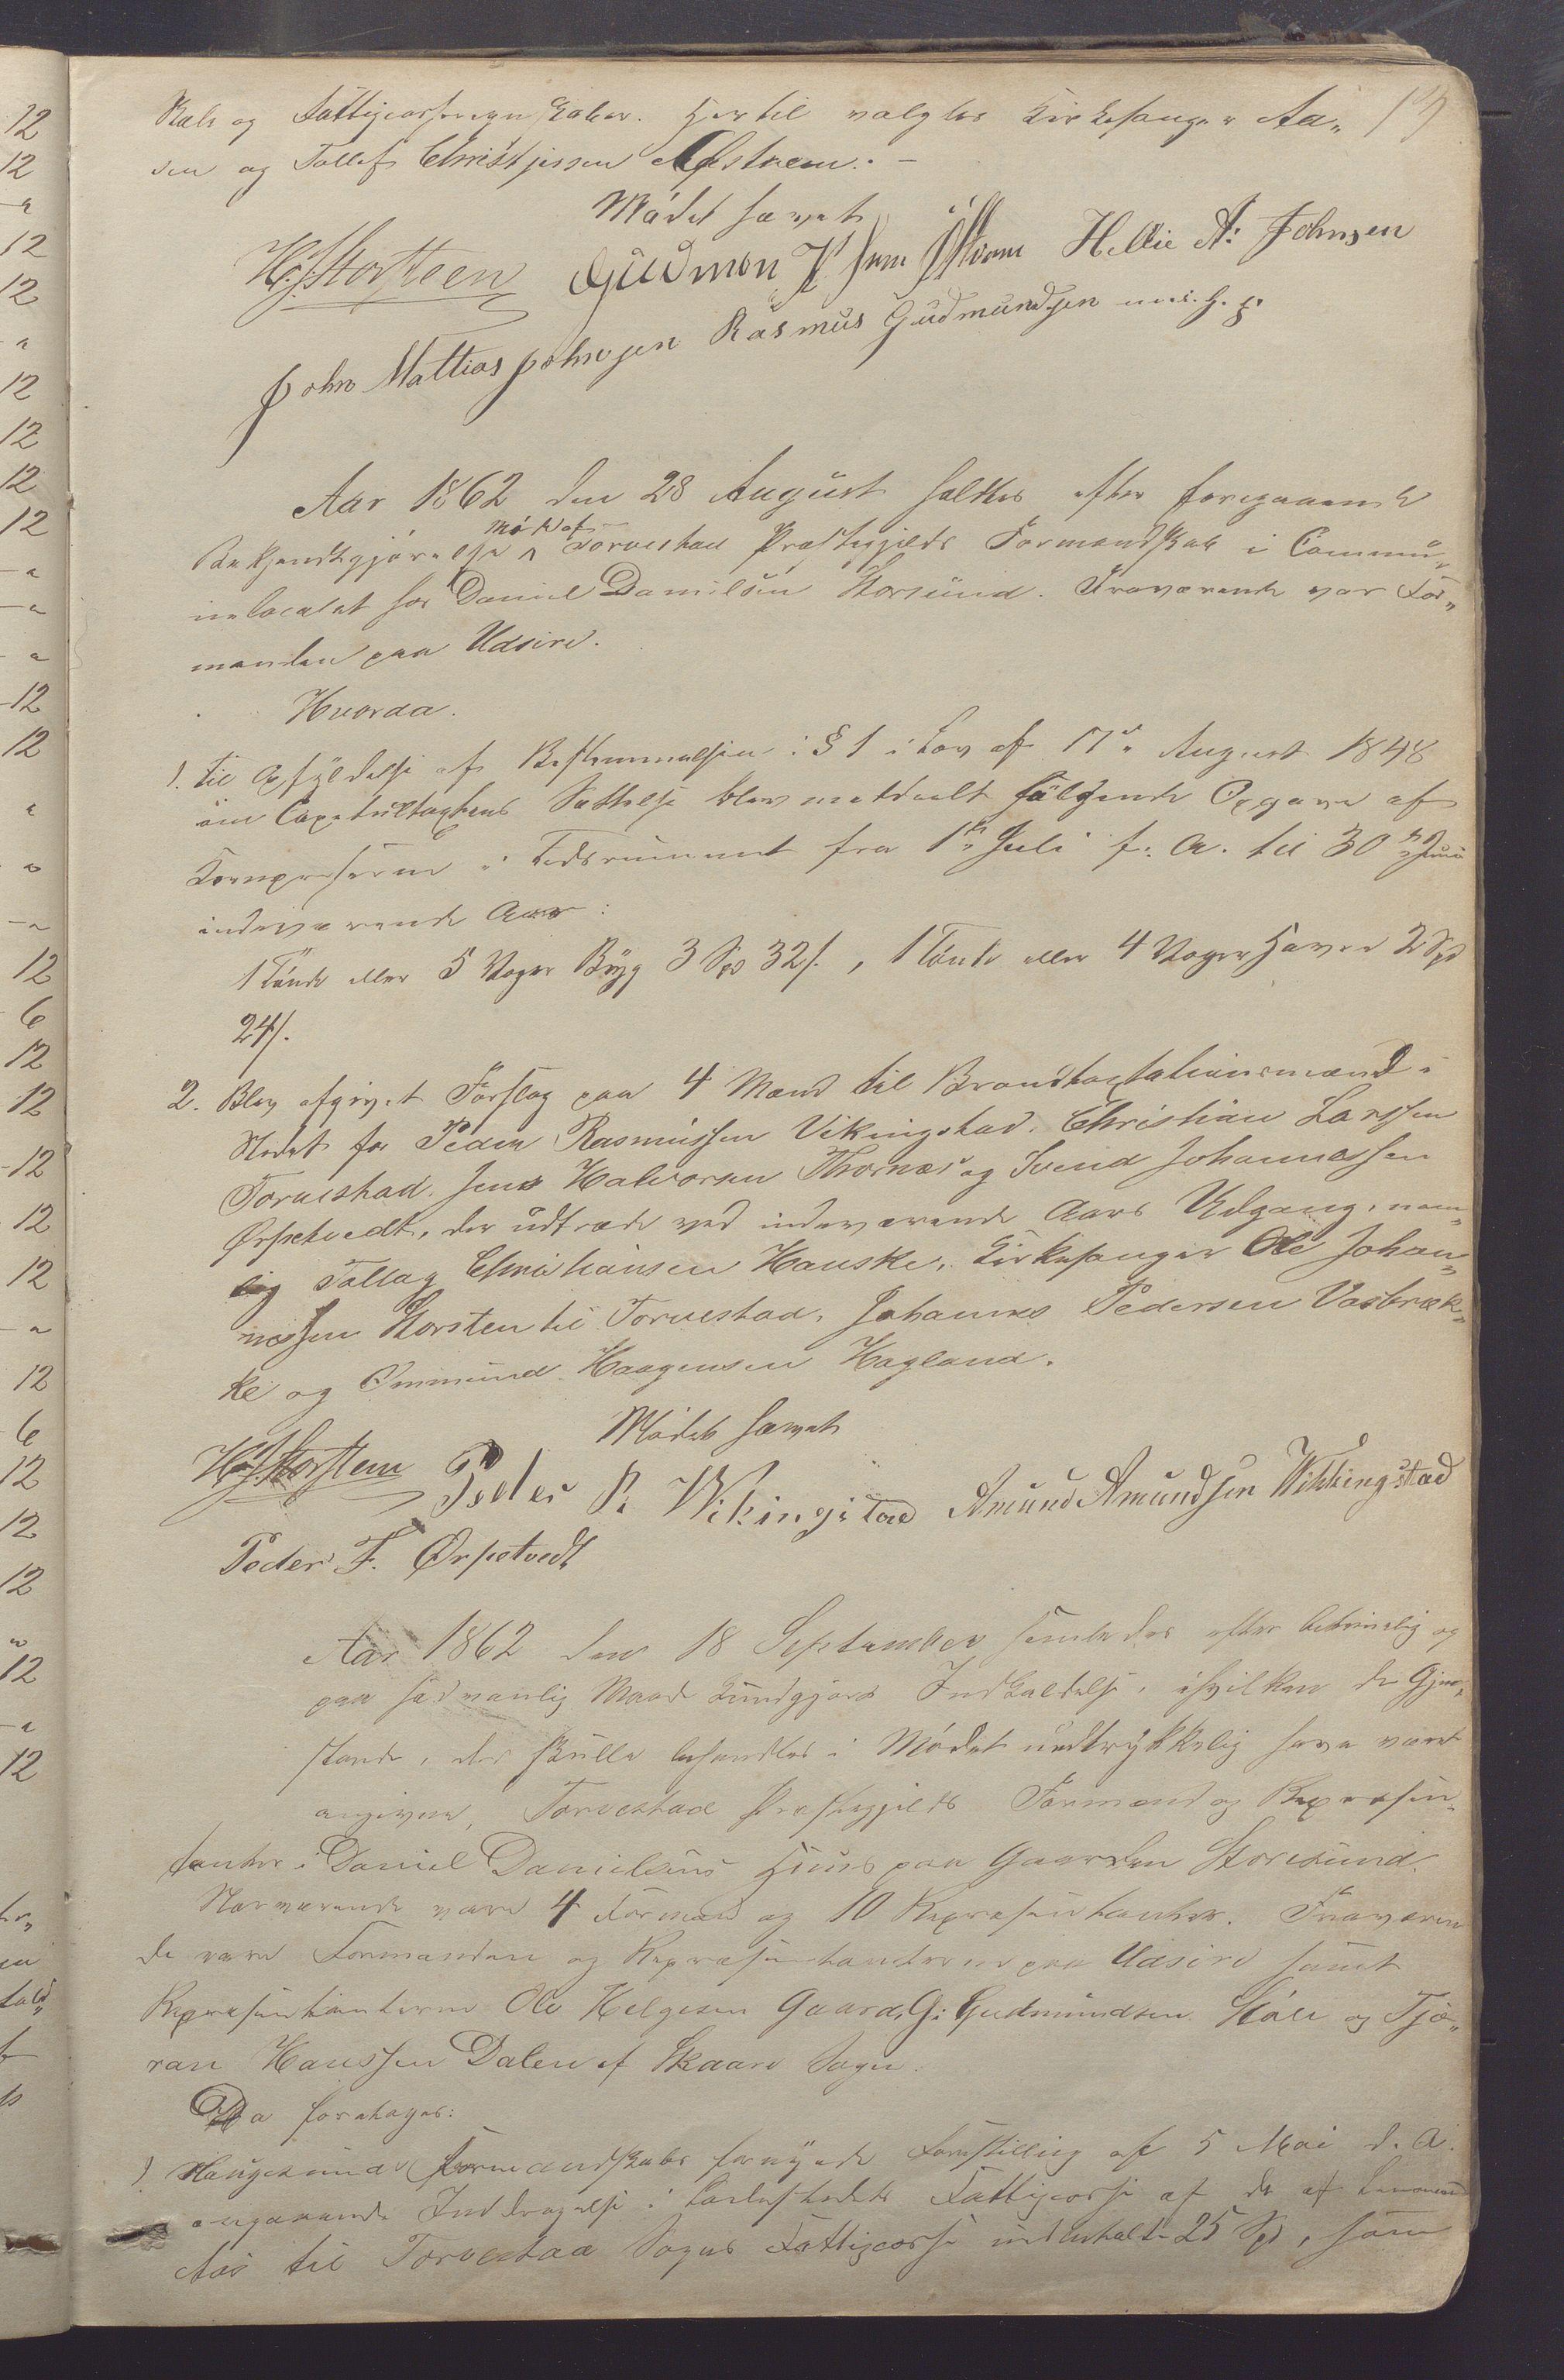 Skole og Fattigcasseregnskaber. Hertil valgtes Kirkesanger Aa„
sen og Tollef Christjensen
Mödet hævet
H. J. Storsteen Gudmon Hellie A: Johnsen
John Mattias Johnsen Rasmus Gudmundsen m. i. h. p.
Aar 1862 den 28 August holdtes efter foregaaende
Bekjendtgjørelse Møde af Torvestad Præstegjelds Formandskab i Commu„
nelocalet hos Daniel Danielsen Storsund. Fraværende var For„
manden paa Udsire.
Hvorda.
1. Til Opfyldelse af Bestemmelsen i § 1 i Lov af 17de August 1848
om Capitultaxtens Sættelse blev meddeelt følgende Opgave af
Kornpriserne i Tidsrummet fra 1ste Juli f. A. til 30te Juni
indeværende Aar:
1 Tønde eller 5 Voger Byg 3 Spd 32 s., 1 Tønde eller 4 Voger Havre 2 Spd
24 s.
2. Blev afgivet Forslag paa 4 Mænd til Brandtaxtationsmænd i
Stedet for Peder Rasmussen Vikingstad, Christian Larssen
Torvestad, Jens Halvorsen Thornæs og Svend Johannessen
Ørpetvedt, der udtræde ved indeværende Aars Udgang, nem„
lig Tollag Christiansen Hauske, Kirkesanger Ole Johan„
nessen Storsten til Torvestad, Johannes Pedersen Vasbræk„
ke og Ommund Haagensen Hagland.
Mødet hævet
H. J. Storsteen Peder R. Wikingstad Amund Amundsen Wikkingstad
Peder F. Ørpetvedt
Aar 1862 den 18 September samledes efter betimelig og
paa sædvanlig Maade kundgjort Indkaldelse, i hvilken de Gjen„
stande, der skulle behandles i Mødet udtrykkelig have været
angivne, Torvestad Præstegjelds Formænd og Repræsen„
tanter i Daniel Danielsens Huus paa Gaarden Storesund.
Nærværende vare 4 Formænd og 10 Repræsentanter. Fraværen
de vare Formanden og Repræsentanterne paa Udsire samt
Repræsentanterne Ole Helgesen Gaard, G: Gudmundsen Støle og Tjø„
ran Hanssen Dalen af Skaare Sogn.
Da foretoges:
1) Haugesunds Formandskabs fornyede Forestilling af 5 Mai d. A.
angaaende Inddragelse i Ladestedets Fattigcasse af de af
Aas til Torvestad Sogns Fattigcasse 25 Spd, som